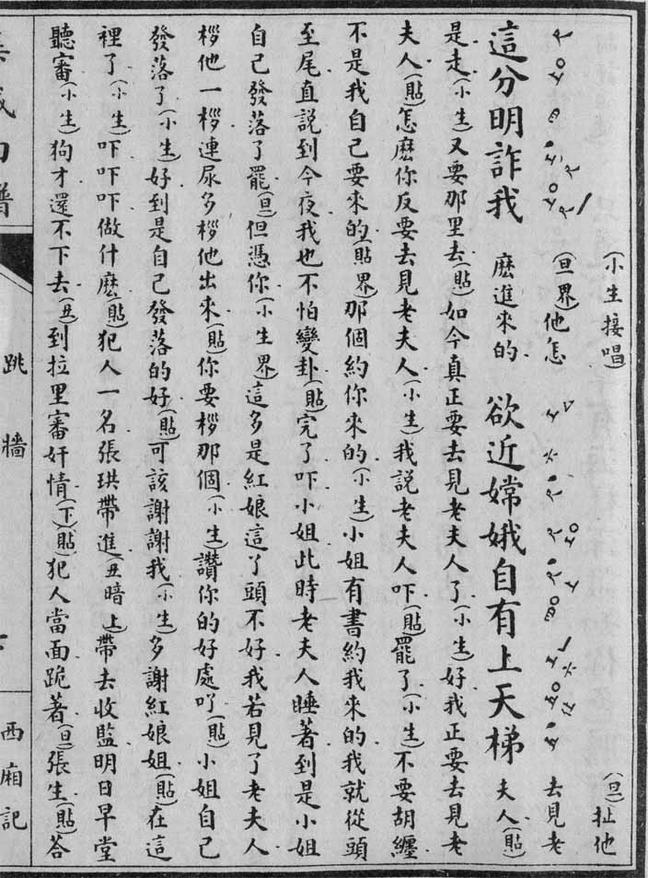 (小生接唱)
(旦)扯他
(旦界)他怎
去見老
這分明詐我 麽進來的 欲近嫦娥自有上天梯 夫人(貼)
是走(小生)又要那里去(貼)如今真正要去見老夫人了(小生)好我正要去見老
夫人(貼)怎麽你反要去見老夫人(小生)我説老夫人吓(貼)罷了(小生)不要胡纏
不是我自己要來的(貼界)那個約你來的(小生)小姐有書約我來的我就從頭
至尾直説到今夜我也不怕變卦(貼)完了吓小姐此時老夫人睡著到是小姐
自己發落了罷(旦)但憑你(小生界)這多是紅娘這了頭不好我若見了老夫人
桚他一桚連尿多桚他出來(貼)你要桚那個(小生)讚你的好處吖(貼)小姐自己
發落了(小生)好到是自己發落的好(貼)可該謝謝我(小生)多謝紅娘姐(貼)在這
裡了(小生)吓吓吓做什麽(貼)犯人一名張珙帶進(丑暗上)帶去收監明日早堂
聽審(小生)狗才還不下去(丑)到拉里審奸情(下)(貼)犯人當面跪著(旦)張生(貼)答
跳牆
西廂記